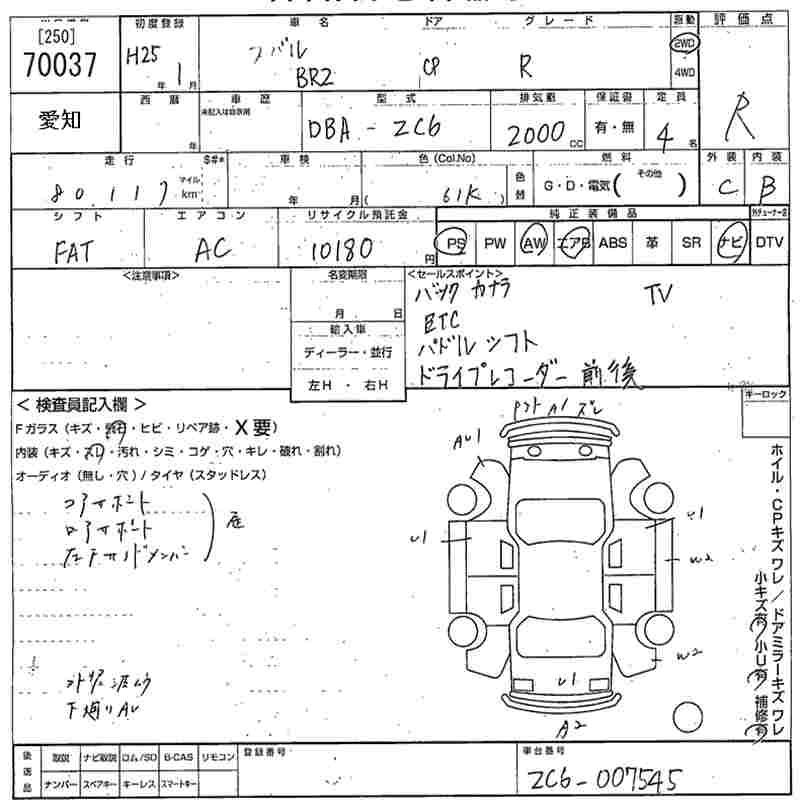 [250]
70037
初度登録
H25年 1月
車名
スバル
BRZ
ドア
CP
グレード
R
駆動
2WD
4WD
評価点
R
愛知
西暦
年
車歴
未記入は自家用
型式
DBA-ZC6
排気量
2000cc
保証書
有・無
定員
4名
走行
80,117
マイル
km
$#*
車検
年 月
色 (Col.No)
(61K)
色替
燃料
G・D・電気( その他 )
外装
C
内装
B
シフト
FAT
エアコン
AC
リサイクル預託金
10180円
純正装備品
PS PW AW エアB ABS 革 SR ナビ
DTV
<注意事項>
名変期限
月 日
輸入車
ディーラー・並行
左H・右H
<セールスポイント>
バックカメラ TV
ETC
パドルシフト
ドライブレコーダー 前後
<検査員記入欄>
Fガラス (キズ・飛石・ヒビ・リペア跡・X要)
内装 (キズ・スリ・汚れ・シミ・コゲ・穴・キレ・破れ・割れ)
オーディオ (無し・穴) / タイヤ (スタッドレス)
コアサポート
ロアサポート
左Fサイドメンバー
キーロック
A1 ズレ
AU1
U1
U1
W2
W2
U1
A2
ホイル・CPキズ ワレ / ドアミラーキズ ワレ
小キズ有 小U有 補修有
下廻り
後返品
取説 ナビ取説 ロム/SD B-CAS リモコン
ナンバー スペアキー キーレス スマートキー
登録番号
車台番号
ZC6-007545